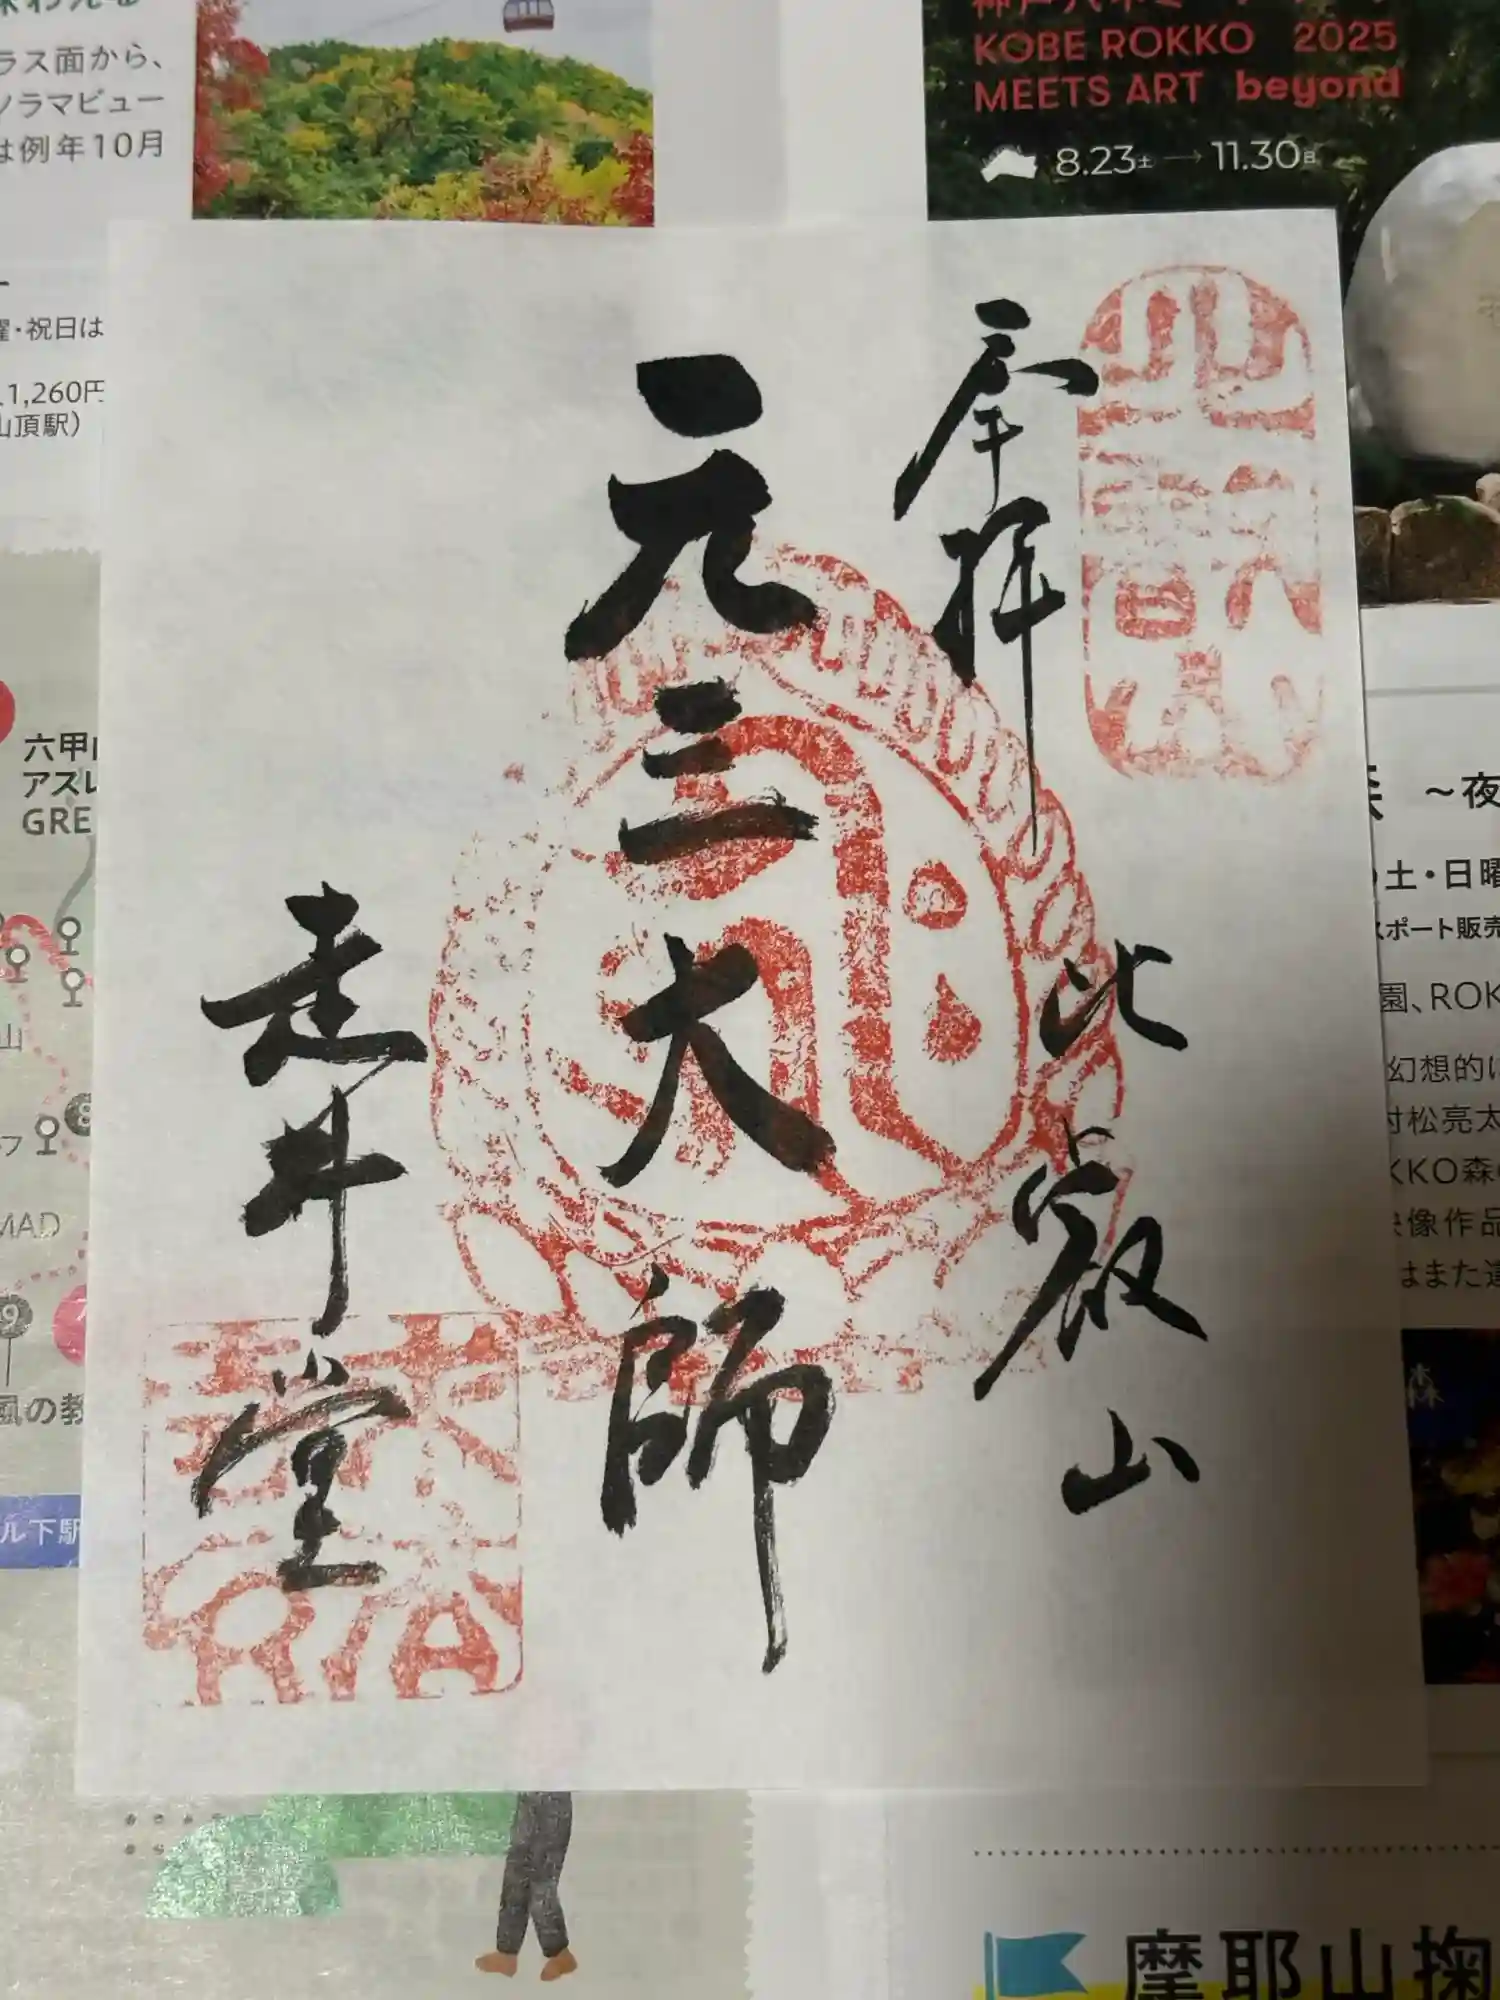 ラス面から、
ソラマビュー
は例年10月
KOBE ROKKO 2025
MEETS ART beyond
8.23土→11.30日
曜・祝日は
1,260円
山頂駅）
奉拝
比叡山
元三大師
走井堂
比叡山
六甲山
アスレ
GRE
山
フ
8
MAD
9
7
風の教
ル下駅
～夜
土・日曜
スポート販売
園、ROK
幻想的に
村松亮太
KKO森の
映像作品
はまた違
森
摩耶山掬